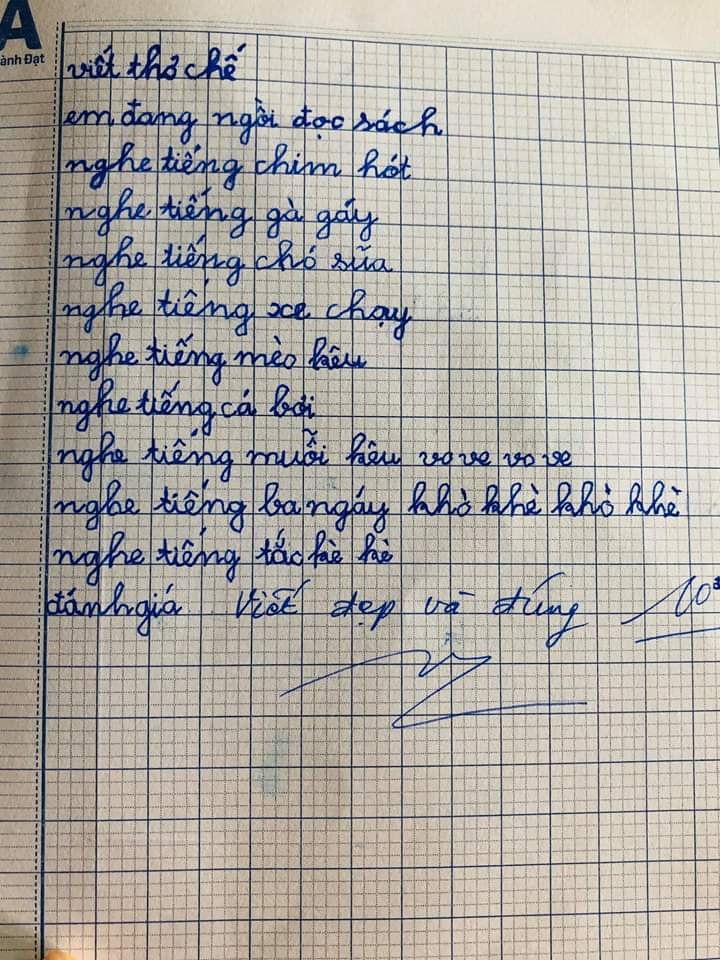 A
ành Đạt
viết thơ chế
em đang ngồi đọc sách
nghe tiếng chim hót
nghe tiếng gà gáy
nghe tiếng chó sũa
nghe tiếng xe chạy
nghe tiếng mèo kêu
nghe tiếng cá bơi
nghe tiếng muỗi kêu vo ve vo ve
nghe tiếng ba ngáy khò khè khò khè
nghe tiếng tắc kè kè
đánh giá Viết đẹp và đúng 10đ